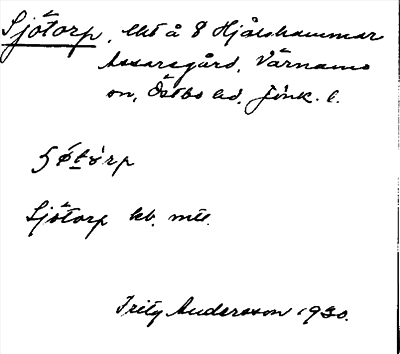 Sjötorp, lht å 8 Hjälshammar
Assarsgård, Värnamo
sn, Östbo hd, Jönk. l.
Sjötorp kb. mtl.
Fritz Andersson 1930.